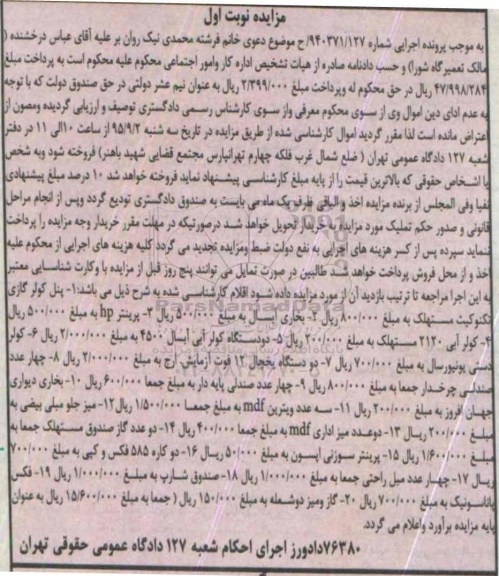 مزایده نوبت اول
به موجب پرونده اجرایی شماره ۹۴۰۳۷۱/۱۲۷/ ح موضوع دعوی خانم فرشته محمدی نیک روان بر علیه آقای عباس درخشنده (
مالک تعمیرگاه شورا) و حسب دادنامه صادره از هیات تشخیص اداره کار وامور اجتماعی محکوم علیه محکوم است به پرداخت مبلغ
۴۷/۹۹۸/۲۸۴ ریال در حق محکوم له وپرداخت مبلغ ۲/۳۹۹/۰۰۰ ریال به عنوان نیم عشر دولتی در حق صندوق دولت که با توجه
به عدم ادای دین اموال وی از سوی محکوم معرفی واز سوی کارشناس رسمی دادگستری توصیف و ارزیابی گردیده ومصون از
اعتراض مانده است لذا مقرر گردید اموال کارشناسی شده از طریق مزایده در تاریخ سه شنبه ۹۵/۹/۲ از ساعت ۱۰الی ۱۱ در دفتر
شعبه ۱۲۷ دادگاه عمومی تهران ( ضلع شمال غرب فلکه چهارم تهرانپارس مجتمع قضایی شهید باهنر) فروخته شود وبه شخص
یا اشخاص حقوقی که بالاترین قیمت را از پایه مبلغ کارشناسی پیشنهاد نماید فروخته خواهد شد ۱۰ درصد مبلغ پیشنهادی
نقدا وفی المجلس از برنده مزایده اخذ و الباقی ظرف یک ماه می بایست به صندوق دادگستری تودیع گردد وپس از انجام مراحل
قانونی و صدور حکم تملیک مورد مزایده به خریدار تحویل خواهد شد درصورتیکه در مهلت مقرر خریدار وجه مزایده را پرداخت
ننماید سپرده پس از کسر هزینه های اجرایی به نفع دولت ضبط ومزایده تجدید می گردد کلیه هزینه های اجرایی از محکوم علیه
اخذ و از محل فروش پرداخت خواهد شد طالبین در صورت تمایل می توانند پنج روز قبل از مزایده با وکارت شناسایی معتبر
به این اجرا مراجعه تا ترتیب بازدید آن از مورد مزایده داده شود اقلام کارشناسی شده به شرح ذیل می باشد:۱- پنل کولر گازی
تکنوکیت مستهلک به مبلغ ۸۰۰/۰۰۰ ریال ۲- بخاری آبسال به مبلغ ۵۰۰/۰۰۰ ریال ۳- پرینتر hp به مبلغ ۵۰۰/۰۰۰ ریال
۴- کولر آبی ۲۱۲۰ مستهلک به مبلغ ۲۰۰/۰۰۰ ریال ۵- دودستگاه کولر آبی آبسال ۴۵۰۰ به مبلغ ۲/۰۰۰/۰۰۰ ریال ۶- کولر
دستی یونیورسال به مبلغ ۷۰۰/۰۰۰ ریال ۷- دو دستگاه یخچال ۱۲ فوت آزمایش ارج به مبلغ ۲/۰۰۰/۰۰۰ ریال ۸- چهار عدد
صندلی چرخدار جمعا به مبلغ ۸۰۰/۰۰۰ ریال ۹- چهار عدد صندلی پایه دار به مبلغ جمعا ۶۰۰/۰۰۰ ریال ۱۰- بخاری دیواری
جهان افروز به مبلغ ۲۰۰/۰۰۰ ریال ۱۱- سه عدد ویترین mdf به مبلغ جمعا ۱/۵۰۰/۰۰۰ ریال ۱۲- میز جلو مبلی بیضی به
مبلغ ۲۰۰/۰۰۰ ریال ۱۳- دوعدد میز اداری mdf به مبلغ جمعا ۴۰۰/۰۰۰ ریال ۱۴- دو عدد گاز صندوق مستهلک جمعا به
مبلغ ۱/۶۰۰/۰۰۰ ریال ۱۵- پرینتر سوزنی اپسون به مبلغ ۵۰/۰۰۰ ریال ۱۶- دو کاره ۵۸۵ فکس و کپی به مبلغ ۷۰۰/۰۰۰
ریال ۱۷- چهار عدد مبل راحتی جمعا به مبلغ ۱/۰۰۰/۰۰۰ ریال ۱۸- صندوق شارپ به مبلغ ۱/۰۰۰/۰۰۰ ریال ۱۹- فکس
پاناسونیک به مبلغ ۷۰۰/۰۰۰ ریال ۲۰- گاز ومیز دوشعله به مبلغ ۱۵۰/۰۰۰ ریال ( جمعا به مبلغ ۱۵/۶۰۰/۰۰۰ ریال به عنوان
پایه مزایده برآورد واعلام می گردد.
۷۶۳۸۰دادورز اجرای احکام شعبه ۱۲۷ دادگاه عمومی حقوقی تهران